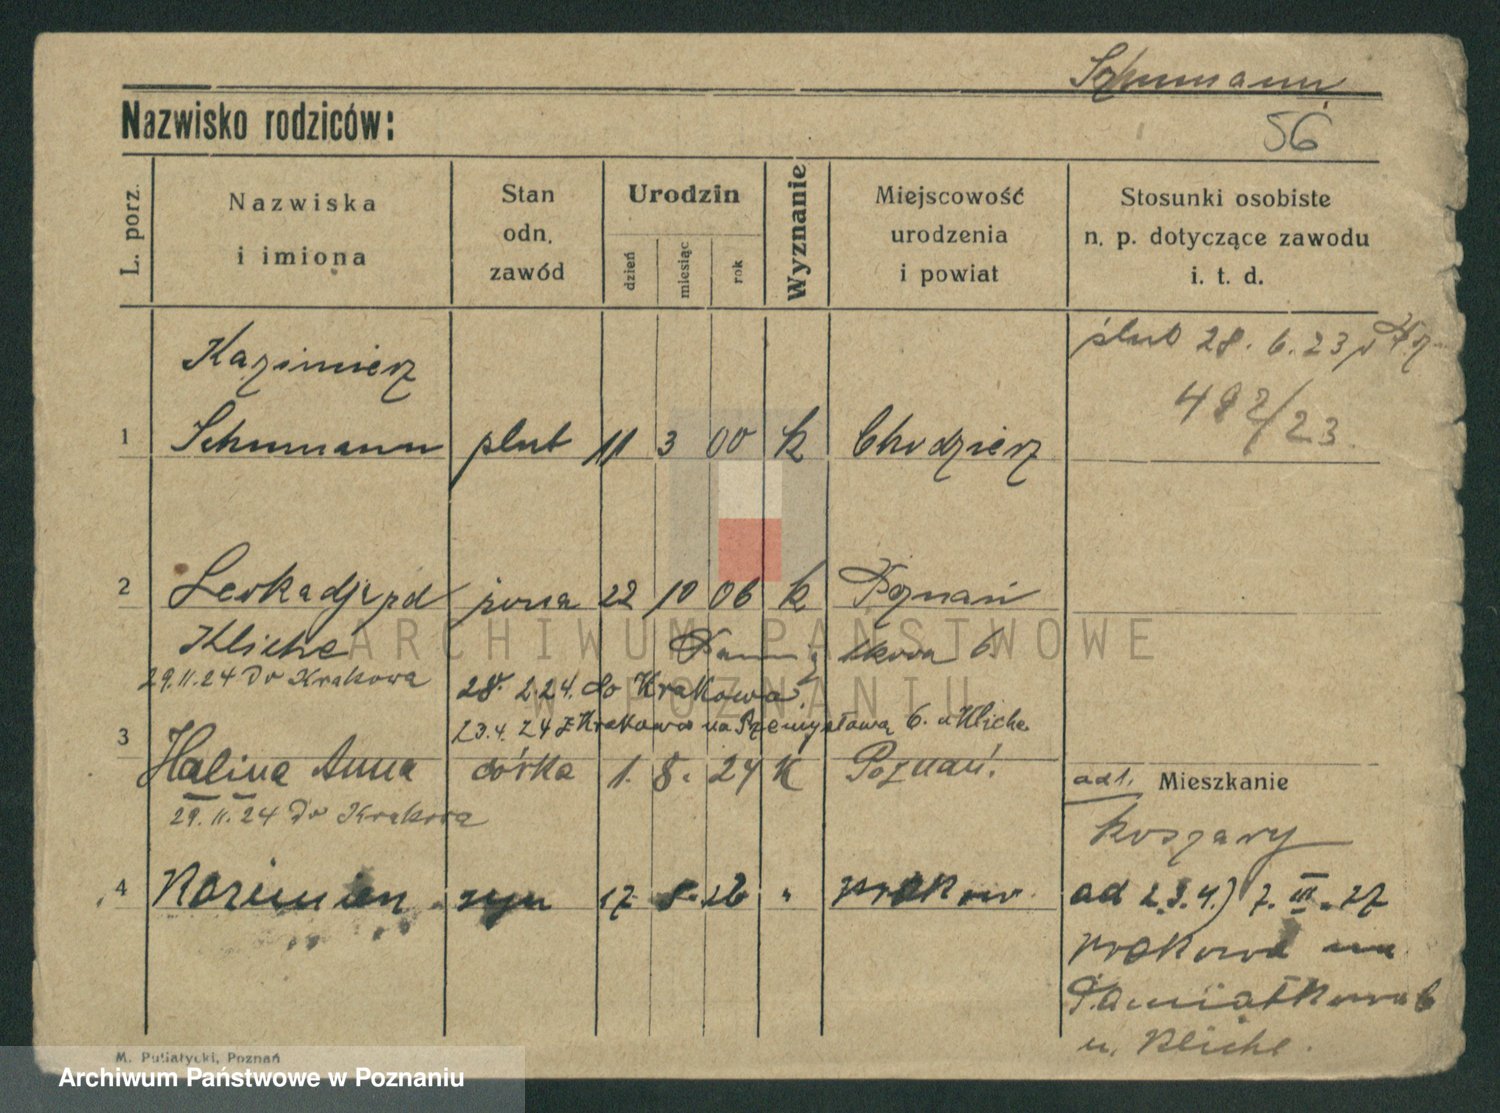 Schumann
Nazwisko rodziców:
56
L. porz.
Nazwiska
i imiona
Stan
odn.
zawód
Urodzin
dzień
miesiąc
rok
Wyznanie
Miejscowość
urodzenia
i powiat
Stosunki osobiste
n. p. dotyczące zawodu
i. t. d.
Kazimierz
ślub 28. 6. 23
1 Schumann plut 11 3 00 k Chodzież
2 Leokadja pd żona 22 10 06 k Poznań
Kliche
29.11.24 do Krakowa
28. 2.24. do Krakowa.
23.4. 24 z Krakowa na Przemysłową 6. u Kliche
3 Halina Anna córka 1. 8. 24 K Poznań.
29. 11. 24 do Krakowa
ad 1. Mieszkanie
koszary
4 Kazimierz syn 17 8. 26 " Krakow.
ad 2.3.4.) 7. III. 27
Krakowa na
Pamiątkowa 6
u. Kliche.
M. Putiatycki, Poznań
ARCHIWUM PAŃSTWOWE
W POZNANIU
Archiwum Państwowe w Poznaniu